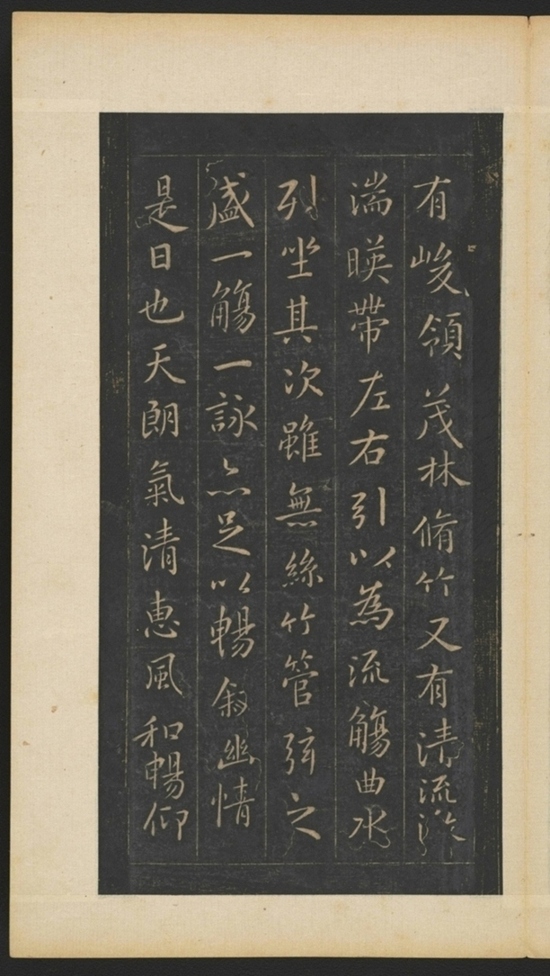 有峻領茂林脩竹又有清流激
湍暎帶左右引以為流觴曲水
列坐其次雖無絲竹管弦之
盛一觴一詠亦足以暢叙幽情
是日也天朗氣清惠風和暢仰